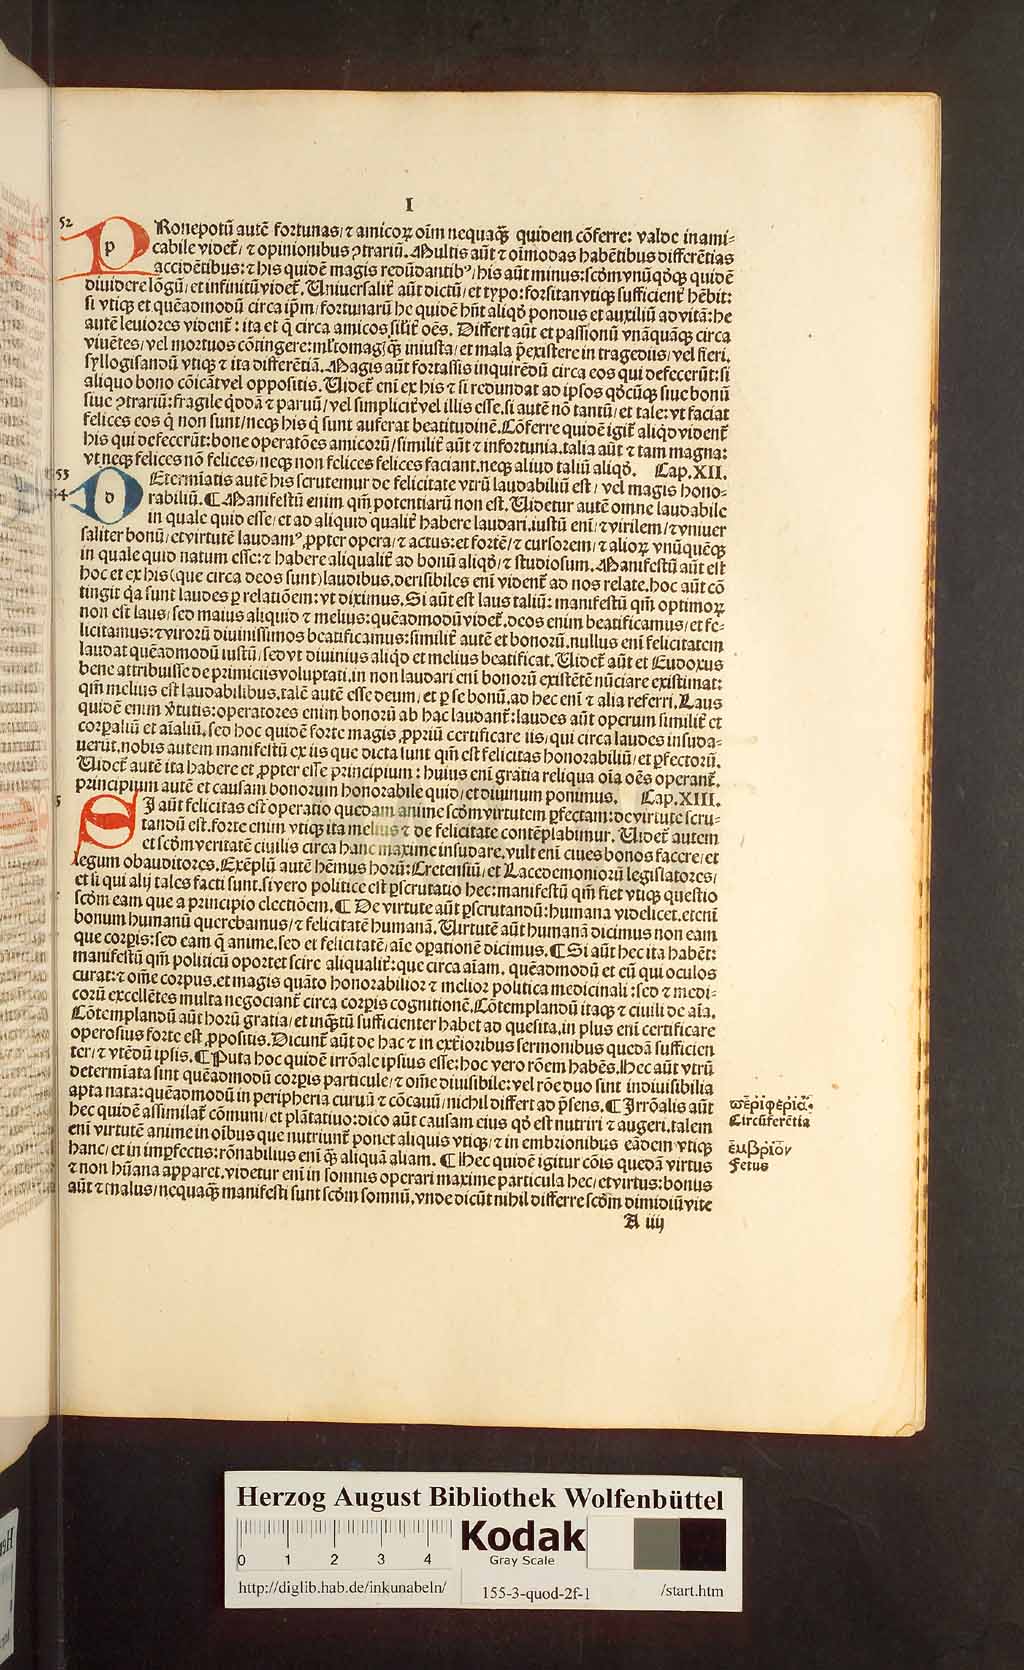 I
52
PRonepotū autē fortunas/ ⁊ amicoꝝ oīm nequaꝙ̄ quidem cōferre: valde inami⸗
p
cabile videt̄/ ⁊ opinionibus ꝯtrariū. Multis aūt ⁊ oīmodas habētibus differētias
accidētibus: ⁊ his quidē magis redūdantibꝰ/ his aūt minus: scḋm vnūqḋqꝫ quidē
diuidere lōgū/ et infinitū videt̄. Uniuersalit̄ aūt dictū/ et typo: forsitan vtiqꝫ sufficient̄ hēbit:
si vtiqꝫ et quēadmodū circa ip̄m/ fortunarū he quidē hn̄t aliqḋ pondus et auxiliū ad vitā: he
autē leuiores vident̄: ita et q̄ circa amicos silit̄ oēs. Differt aūt et passionū vnāquāqꝫ circa
viuētes/ vel mortuos cōtingere: ml̄tomagꝭ ꝙ̄ iniusta/ et mala p̄existere in tragediis/ vel fieri.
syllogisandū vtiqꝫ ⁊ ita differētiā. Magis aūt fortassis inquirēdū circa eos qui defecerūt: si
aliquo bono cōicāt vel oppositis. Uidet̄ enī ex his ⁊ si redundat ad ipsos qḋcūqꝫ siue bonū
siue ꝯtrariū: fragile qḋdā ⁊ paruū/ vel simplicit̄ vel illis esse. si autē nō tantū/ et tale: vt faciat
felices eos q̇ non sunt/ neqꝫ his q̇ sunt auferat beatitudinē. Cōferre quidē igit̄ aliqḋ vident̄
his qui defecerūt: bone operatōes amicorū/ similit̄ aūt ⁊ infortunia. talia aūt ⁊ tam magna:
vt neqꝫ felices nō felices/ neqꝫ non felices felices faciant. neqꝫ aliud taliū aliqḋ. Cap.XII.
53
DEtermiatis autē his scrutemur de felicitate vtrū laudabiliū est/ vel magis hono⸗
54
d
rabiliū. ¶ Manifestū enim qm̄ potentiarū non est. Uidetur autē omne laudabile
in quale quid esse/ et ad aliquid qualit̄ habere laudari. iustū enī/ ⁊ virilem/ ⁊ vniuer
saliter bonū/ et virtutē laudamꝰ ꝓpter opera/ ⁊ actus: et fortē/ ⁊ cursorem/ ⁊ alioꝝ vnūquēqꝫ
in quale quid natum esse: ⁊ habere aliqualit̄ ad bonū aliqḋ/ ⁊ studiosum. Manifestū aūt est
hoc et ex his (que circa deos sunt) laudibus. derisibiles enī vident̄ ad nos relate. hoc aūt cō
tingit q̇a sunt laudes ꝑ relatiōem: vt diximus. Si aūt est laus taliū: manifestū qm̄ optimoꝝ
non est laus/ sed maius aliquid ⁊ melius: quēadmodū videt̄. deos enim beatificamus/ et fe⸗
licitamus: ⁊ virorū diuinissimos beatificamus: similit̄ autē et bonorū. nullus enī felicitatem
laudat quēadmodū iustū/ sed vt diuinius aliqḋ et melius beatificat. Uidet̄ aūt et Eudoxus
bene attribuisse de primiciis voluptati. in non laudari enī bonorū existētē nūciare existimat:
qm̄ melius est laudabilibus. talē autē esse deum/ et ꝑ se bonū. ad hec enī ⁊ alia referri. Laus
quidē enim v̄tutis: operatores enim bonorū ab hac laudant̄: laudes aūt operum similit̄ et
corꝑaliū et aīaliū. sed hoc quidē forte magis ꝓpriū certificare iis/ qui circa laudes insuda⸗
uerūt. nobis autem manifestū ex iis que dicta sunt qm̄ est felicitas honorabiliū/ et ꝑfectorū.
Uidet̄ autē ita habere et ꝓpter esse principium: huius enī gratia reliqua oīa oēs operant̄.
principium autē et causam bonorum honorabile quid/ et diuinum ponimus. Cap.XIII.
SI aūt felicitas est operatio quedam anime scḋm virtutem ꝑfectam: de virtute scru⸗
tandū est. forte enim vtiqꝫ ita melius ⁊ de felicitate contēplabimur. Uidet̄ autem
et scḋm veritatē ciuilis circa hanc maxime insudare. vult enī ciues bonos facere/ et
legum obauditores. Exēplū autē hēmus horū: Cretensiū/ et Lacedemoniorū legislatores/
et si qui alij tales facti sunt. si vero politice est ꝑscrutatio hec: manifestū qm̄ fiet vtiqꝫ questio
scḋm eam que a principio electiōem. ¶ De virtute aūt ꝑscrutandū: humana videlicet. etenī
bonum humanū querebamus/ ⁊ felicitatē humanā. Uirtutē aūt humanā dicimus non eam
que corꝑis: sed eam q̄ anime. sed et felicitatē/ aīe oꝑationē dicimus. ¶ Si aūt hec ita habēt:
manifestū qm̄ politicū oportet scire aliqualit̄: que circa aīam. quēadmodū et eū qui oculos
curat: ⁊ om̄e corpus. et magis quāto honorabilior ⁊ melior politica medicinali: sed ⁊ medi⸗
corū excellētes multa negociant̄ circa corꝑis cognitionē. Cōtemplandū itaqꝫ ⁊ ciuili de aīa.
Cōtemplandū aūt horū gratia/ et inqꝫtū sufficienter habet ad quesita. in plus enī certificare
operosius forte est ꝓpositis. Dicunt̄ aūt de hac ⁊ in ext̄ioribus sermonibus quedā sufficien
ter/ ⁊ vtēdū ipsis. ¶ Puta hoc quidē irrōale ipsius esse: hoc vero rōem habēs. Hec aūt vtrū
determiata sint quēadmodū corꝑis particule/ ⁊ om̄e diuisibile: vel rōe duo sint indiuisibilia
apta nata: quēadmodū in peripheria curuū ⁊ cōcauū/ nichil differt ad p̄sens. ¶ Irrōalis aūt
hec quidē assimilat̄ cōmuni/ et plātatiuo: dico aūt causam eius qḋ est nutriri ⁊ augeri. talem
enī virtutē anime in oībus que nutriunt̄ ponet aliquis vtiqꝫ/ ⁊ in embrionibus eādem vtiqꝫ
hanc/ et in imꝑfectus: rōnabilius enī ꝙ̄ aliquā aliam. ¶ Hec quidē igitur cōis quedā virtus
⁊ non hūana apparet. videtur enī in somnis operari maxime particula hec/ et virtus: bonus
aūt ⁊ malus/ nequaꝙ̄ manifesti sunt scḋm somnū. vnde dicūt nihil differre scḋm dimidiū vite
A iiij
περιφερία.
Circūferētia
ἔμβριον
Fetus
Herzog August Bibliothek Wolfenbüttel
0 1 2 3 4
Kodak
Gray Scale
http://diglib.hab.de/inkunabeln/
155-3-quod-2f-1
/start.htm